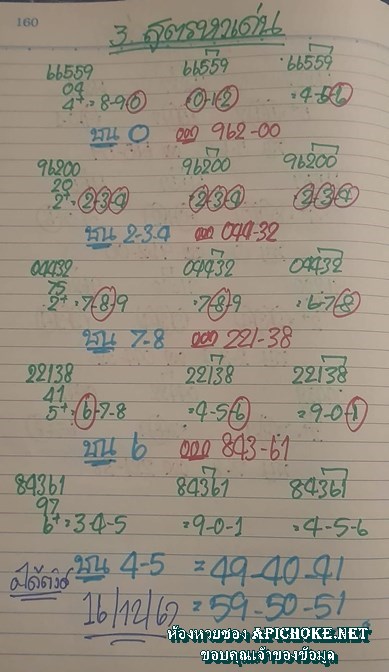 160
3 สูตรหาเด่น
66559 66559 66559
09
4+ = 8-9-0 0-1-2 = 4-5-6
ชน 0 ออก 962-00
96200 96200 96200
20
2+ = 2-3-4 2-3-4 2-3-4
ชน 2-3-4 ออก 044-32
04432 04432 04432
75
2+ = 7-8-9 = 7-8-9 = 6-7-8
ชน 7-8 ออก 221-38
22138 22138 22138
41
5+ = 6-7-8 = 4-5-6 = 9-0-1
ชน 6 ออก 843-61
84361 84361 84361
97
6+ = 3-4-5 = 9-0-1 = 4-5-6
ชน 4-5 = 49-40-41
16/12/67 = 59-50-51
ห้องหวยซอง APICHOKE.NET
ขอบคุณเจ้าของข้อมูล